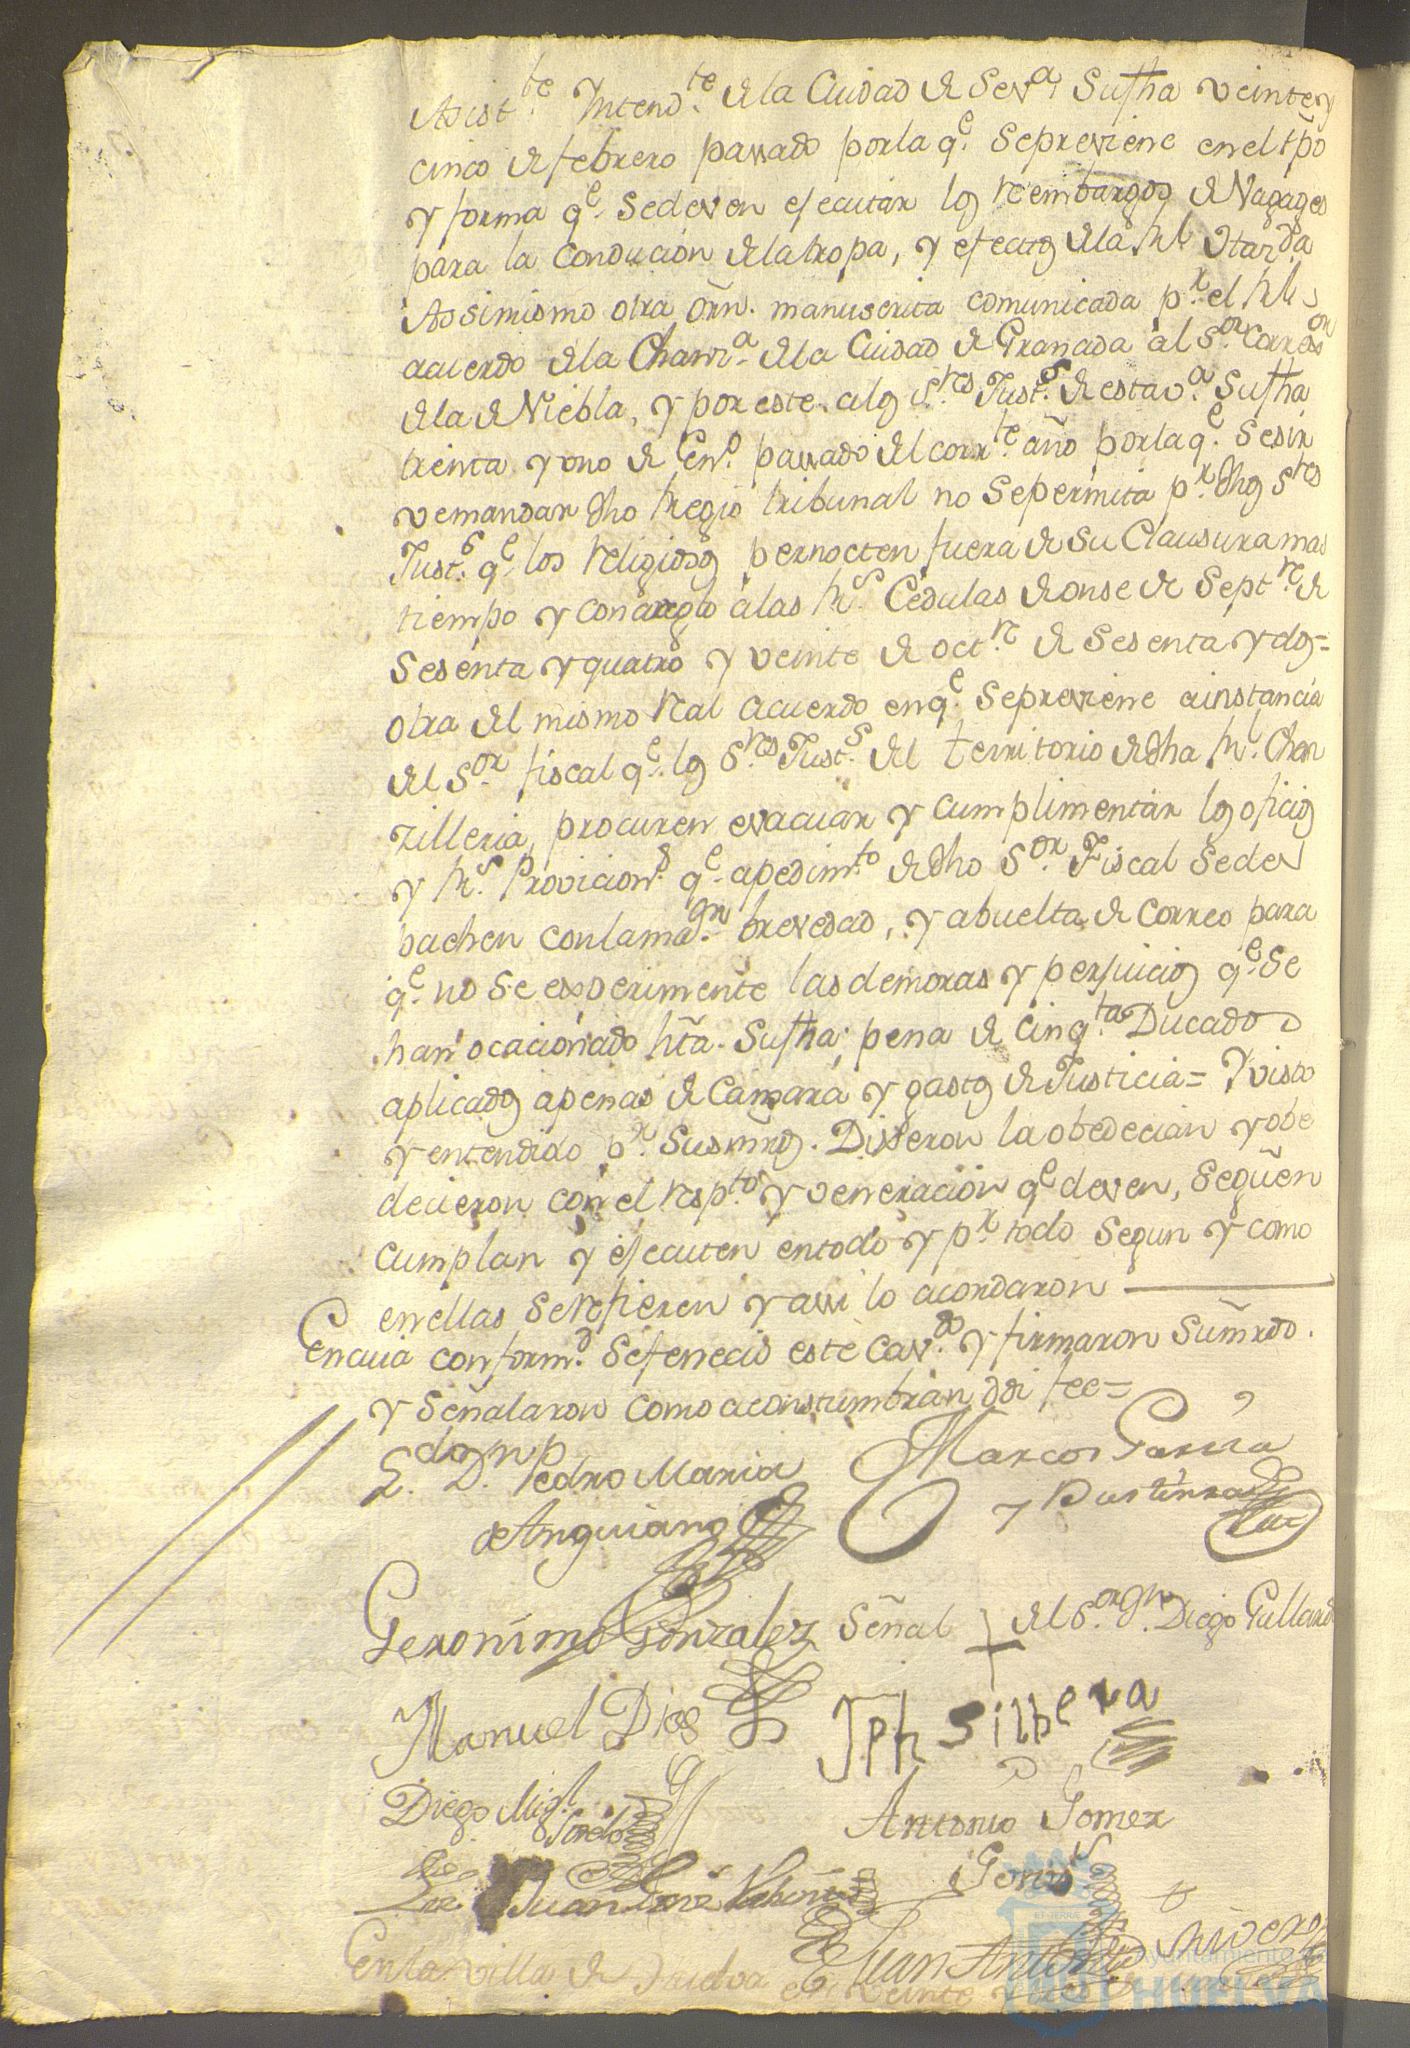 Asist.te Yntend.te de la Ciudad de Sev.a su fha veinte y
cinco de febrero passado por la q.e se previene en el tpõ
y forma q.e se deven ejecutar los rembargos de Vagages
para la Conducion de la tropa, y efectos de la Rl
Assimismo otra orñ. manuscrita comunicada p.r el Rl
acuerdo de la Chan.a de la Ciudad de Granada al S.or Corr.or
de la de Niebla, y por este a los S.res Just.s de esta v.a su fha
treinta y uno de En.o passado del corr.te año por la q.e se sir
ve mandar dho Regio tribunal no se permita p.r dhos S.res
Just.s q.e los Religiosos pernocten fuera de su Clausura mas
tiempo y con areglo a las R.s Cedulas de onse de Sept.re de
sesenta y quatro y veinte de oct.re de sesenta y dos=
otra del mismo Real acuerdo en q.e se previene a instancia
del S.or fiscal q.e los S.res Just.s del territorio de dha Rl. Chan
zilleria, procuren evacuar y cumplimentar los oficios
y R.s Provicion.s q.e a pedim.to de dho S.or Fiscal se des
pachen con la ma.or brevedad, y a buelta de correo para
q.e no se experimente las demoras y perjuicios q.e se
han ocacionado hta. su fha; pena de cinq.ta Ducados
aplicados a penas de Camara y gastos de Justicia= Y visto
y entendido p.r sus mrds. Dixeron la obedecian y obe
decieron con el resp.to y veneracion q.e deven, se guẽn
cumplan y ejecuten en todo y p.r todo segun y como
en ellas se refieren y assi lo acordaron
En cuia conform.d se fenecio este Cav.do y firmaron sus mrds.
y señalaron como acostumbran doi fee=
L.do D.n Pedro Maria
de Anguiano
Marcos Garcia
y Bustinza
Geronimo Gonzalez
Señal + del S.or Dn. Diego Gallardo
Manuel Dias
Jph Silbera
Diego Mig.l
Antonio Gomez
Juan Jose
Juan Antonio
En la villa de Huelva en veinte y
Ayuntamiento
HUELVA